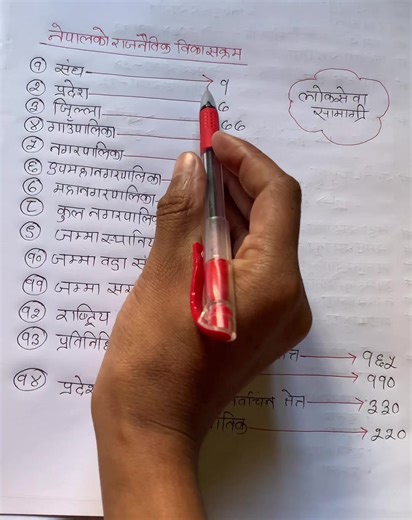 नेपालको राजनैतिक विकासक्रम
लोकसेवा
सामाग्री
१ संघ → १
२ प्रदेश ७
३ जिल्ला ७७
४ गाउँपालिका
५ नगरपालिका
६ उपमहानगरपालिका
७ महानगरपालिका
८ कुल नगरपालिका
९ जम्मा स्थानिय
१० जम्मा वडा
११ जम्मा
१२ राष्ट्रिय
१३ प्रतिनिधि → १६५
→ ११०
१४ प्रदेश निर्वाचन क्षेत्र → ३३०
→ २२०